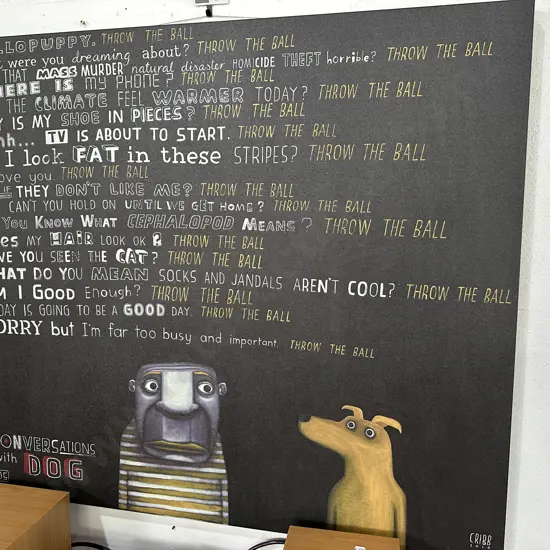 LLOPUPPY. THROW THE BALL
were you dreaming about? THROW THE BALL
THAT MASS MURDER natural disaster HOMICIDE THEFT horrible? THROW THE BALL
HERE IS MY PHONE? THROW THE BALL
THE CLIMATE FEEL WARMER TODAY? THROW THE BALL
Y IS MY SHOE IN PIECES? THROW THE BALL
hh... TV IS ABOUT TO START. THROW THE BALL
I look FAT in these STRIPES? THROW THE BALL
ove you. THROW THE BALL
IF THEY DON'T LIKE ME? THROW THE BALL
CAN'T YOU HOLD ON UNTIL WE GET HOME? THROW THE BALL
YOU KNOW WHAT CEPHALOPOD MEANS? THROW THE BALL
es MY HAIR LOOK OK? THROW THE BALL
VE YOU SEEN THE CAT? THROW THE BALL
HAT DO YOU MEAN SOCKS AND JANDALS AREN'T COOL? THROW THE BALL
M I GOOD Enough? THROW THE BALL
DAY IS GOING TO BE A GOOD DAY. THROW THE BALL
ORRY but I'm far too busy and important. THROW THE BALL
CONVERSATIONS
with DOG
CRIBB